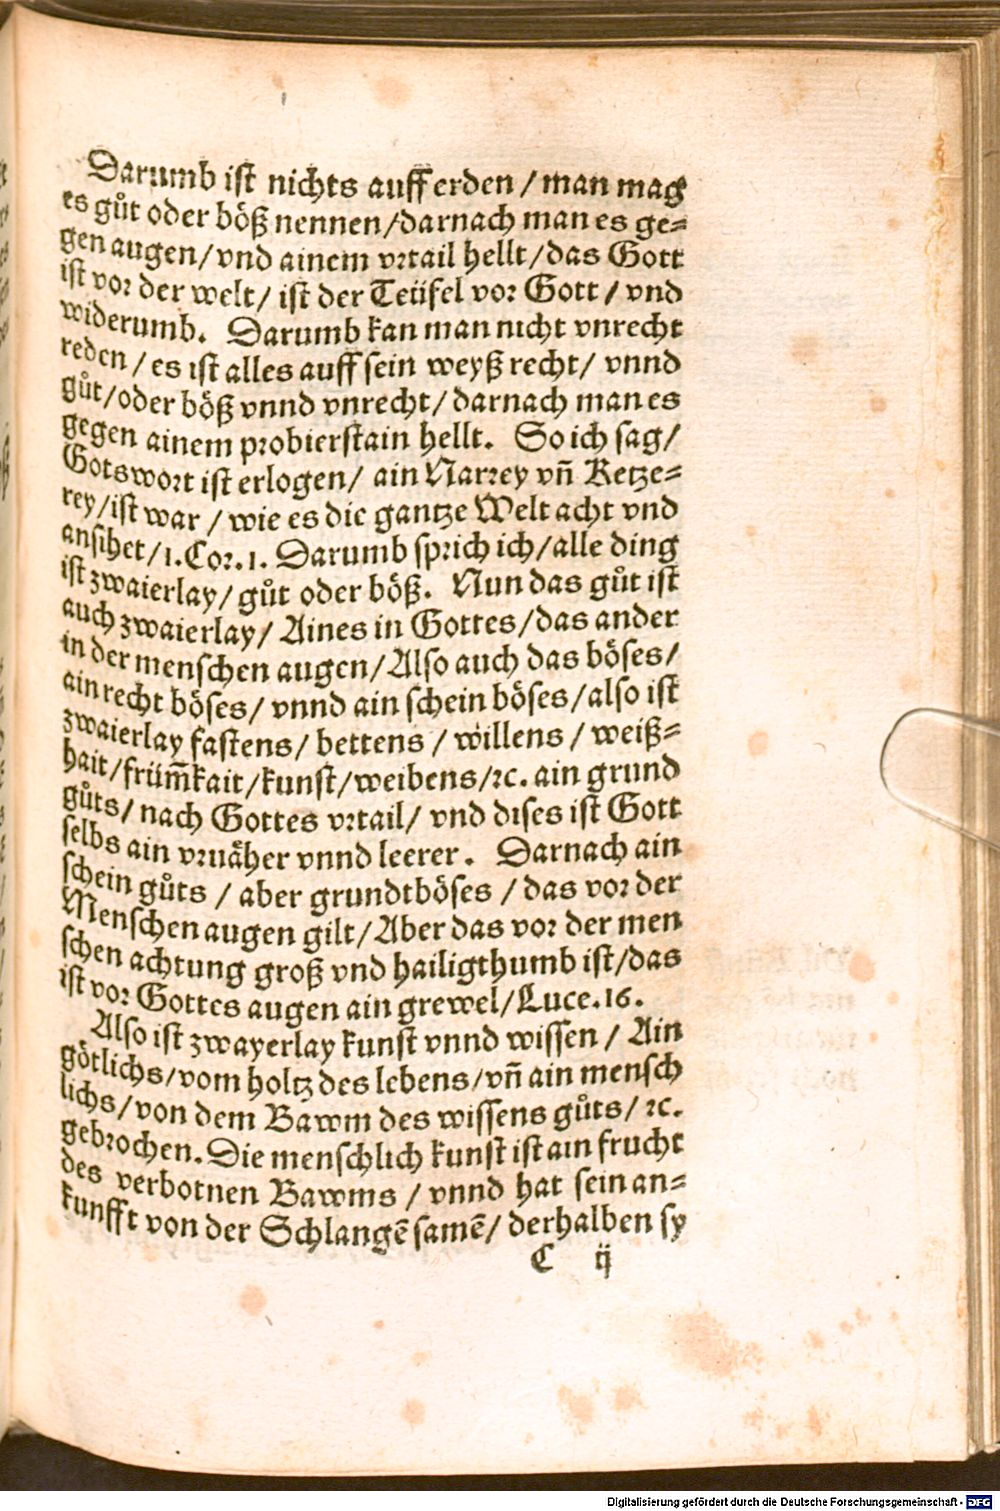 Darumb ist nichts auff erden / man mag
es gůt oder böß nennen / darnach man es ge=
gen augen / vnd ainem vrtail hellt / das Gott
ist vor der welt / ist der Teüfel vor Gott / vnd
widerumb. Darumb kan man nicht vnrecht
reden / es ist alles auff sein weyß recht / vnnd
gůt / oder böß vnnd vnrecht / darnach man es
gegen ainem probierstain hellt. So ich sag /
Gotswort ist erlogen / ain Narrey vñ Ketze=
rey / ist war / wie es die gantze Welt acht vnd
ansihet / 1. Cor. 1. Darumb sprich ich / alle ding
ist zwaierlay / gůt oder böß. Nun das gůt ist
auch zwaierlay / Aines in Gottes / das ander
in der menschen augen / Also auch das böses /
ain recht böses / vnnd ain schein böses / also ist
zwaierlay fastens / bettens / willens / weiß=
hait / früm̃kait / kunst / weibens / ꝛc. ain grund
gůts / nach Gottes vrtail / vnd dises ist Gott
selbs ain vrnäher vnnd leerer. Darnach ain
schein gůts / aber grundtböses / das vor der
Menschen augen gilt / Aber das vor der men
schen achtung groß vnd hailigthumb ist / das
ist vor Gottes augen ain grewel / Luce. 16.
Also ist zwayerlay kunst vnnd wissen / Ain
götlichs / vom holtz des lebens / vñ ain mensch
lichs / von dem Bawm des wissens gůts / ꝛc.
gebrochen. Die menschlich kunst ist ain frucht
des verbotnen Bawms / vnnd hat sein an=
kunfft von der Schlangẽ samẽ / derhalben sy
C ij
Digitalisierung gefördert durch die Deutsche Forschungsgemeinschaft - DFG